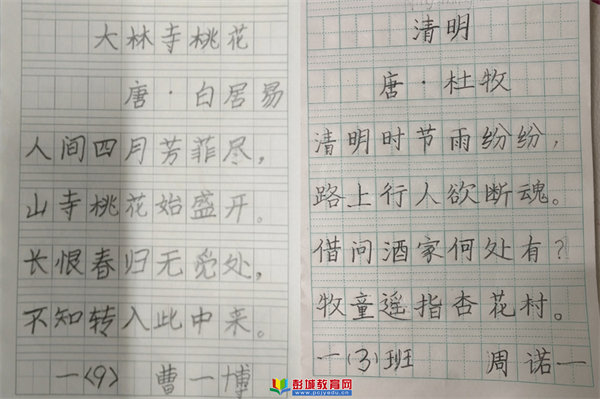 大林寺桃花
唐·白居易
人间四月芳菲尽，
山寺桃花始盛开。
长恨春归无觅处，
不知转入此中来。
一〈9〉 曹一博
清明
唐·杜牧
清明时节雨纷纷，
路上行人欲断魂。
借问酒家何处有？
牧童遥指杏花村。
一〈3〉班 周诺一
彭城教育网
www.pcjyedu.cn